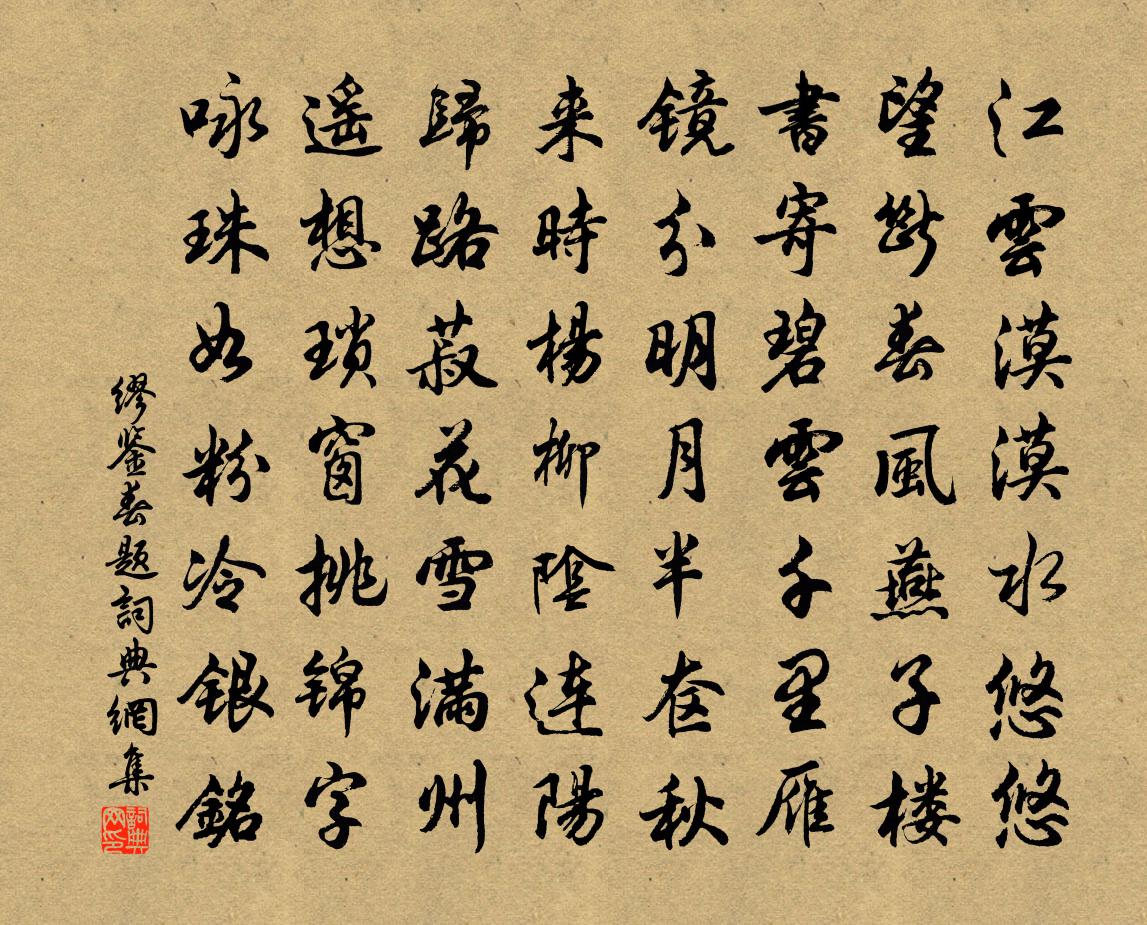 江雲漠漠水悠悠
望斷春風燕子楼
書寄碧雲千里雁
鏡分明月半奩秋
来時楊柳陰連陽
歸路菽花雪满州
遥想瑣窗挑錦字
咏珠如粉冷银銘
缪鉴春題詞典網集
詞典网印